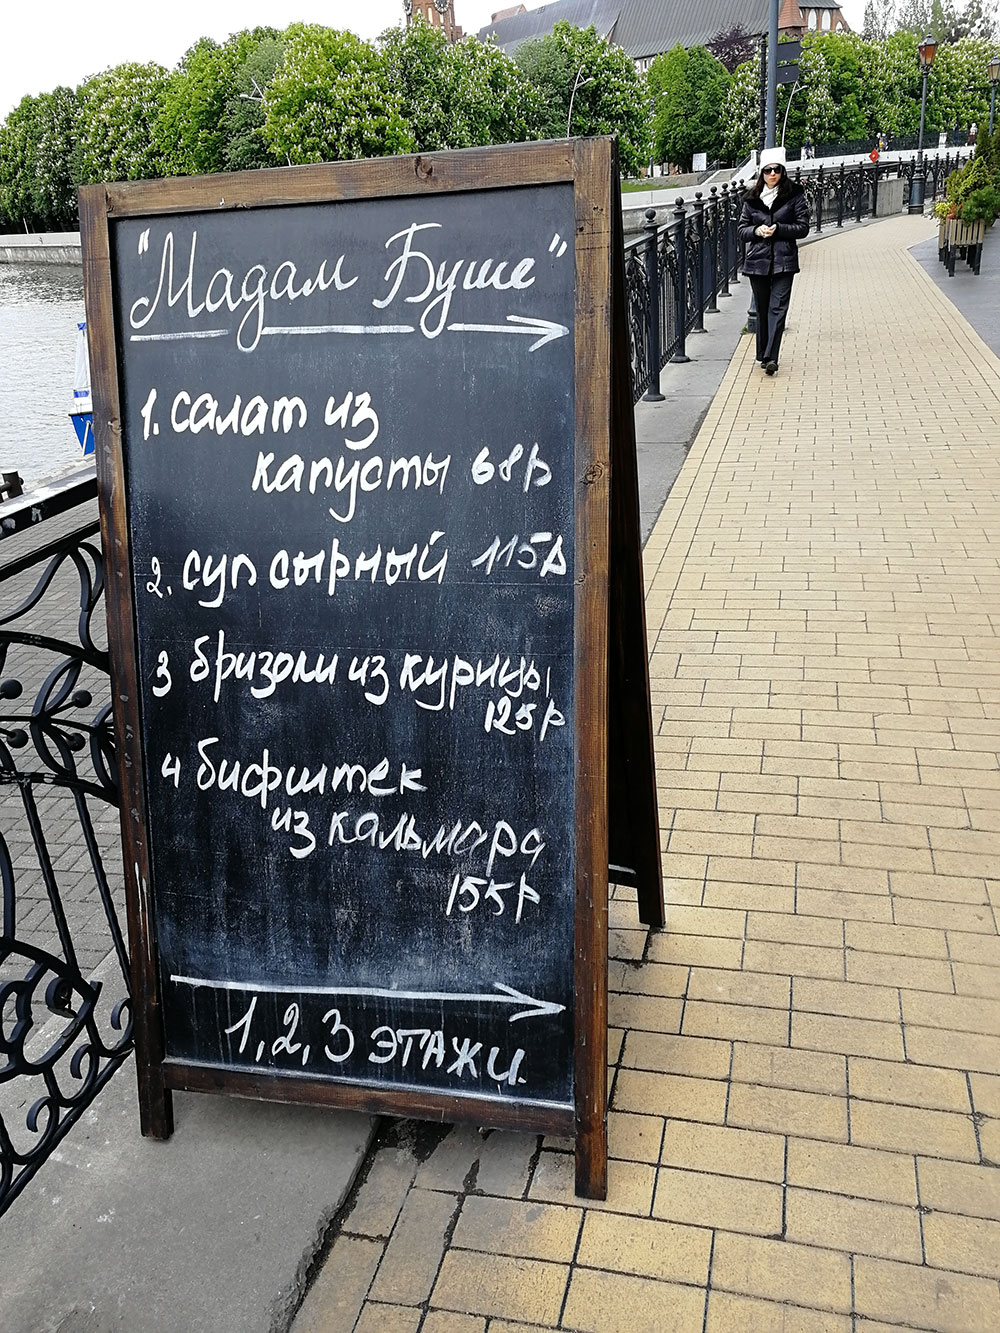 "Мадам Буше"
1. салат из
капусты 68р
2. суп сырный 115р
3 бризоли из курицы
125р
4 бифштек
из кальмара
155р
1, 2, 3 этажи.